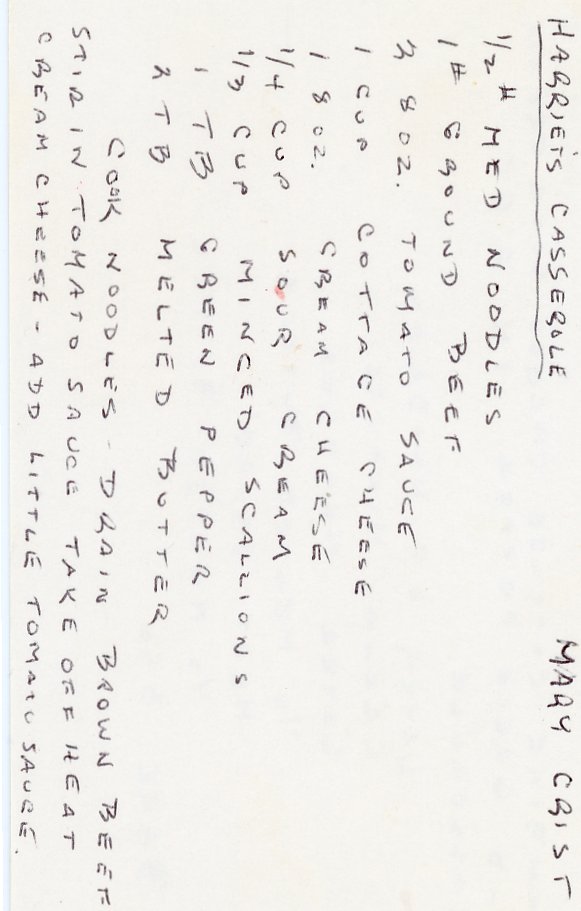 HARRIE'S CASSEROLE MARY CRIST
1/2 # MED NOODLES
1 # GROUND BEEF
3 8 OZ. TOMATO SAUCE
1 CUP COTTAGE CHEESE
1 8 OZ. CREAM CHEESE
1/4 CUP SOUR CREAM
1/3 CUP MINCED SCALLIONS
1 TB GREEN PEPPER
2 TB MELTED BUTTER
COOK NOODLES - DRAIN BROWN BEEF
STIR IN TOMATO SAUCE TAKE OFF HEAT
CREAM CHEESE - ADD LITTLE TOMATO SAUCE.